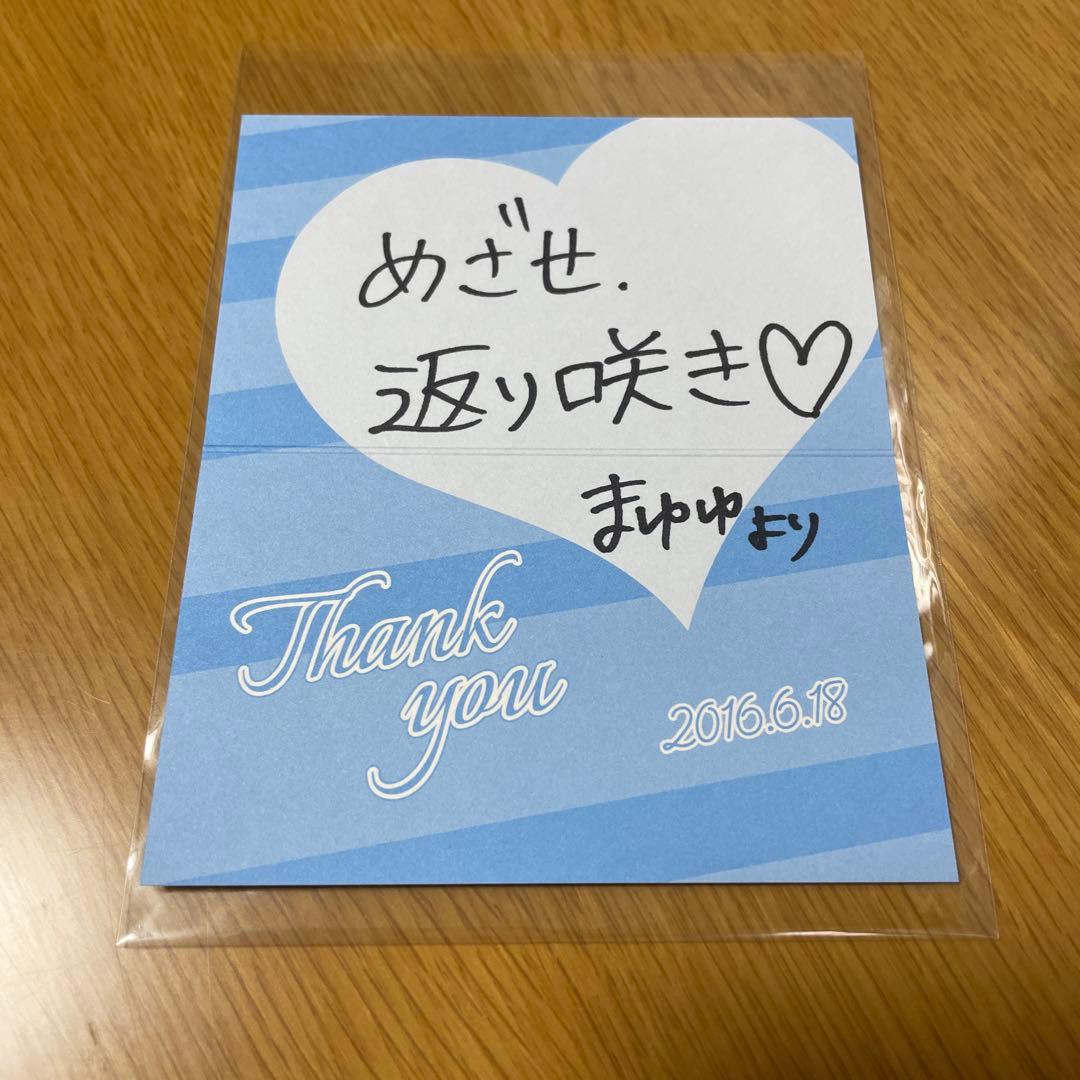 めざせ.
返り咲き♡
まゆゆより
Thank
you
2016.6.18